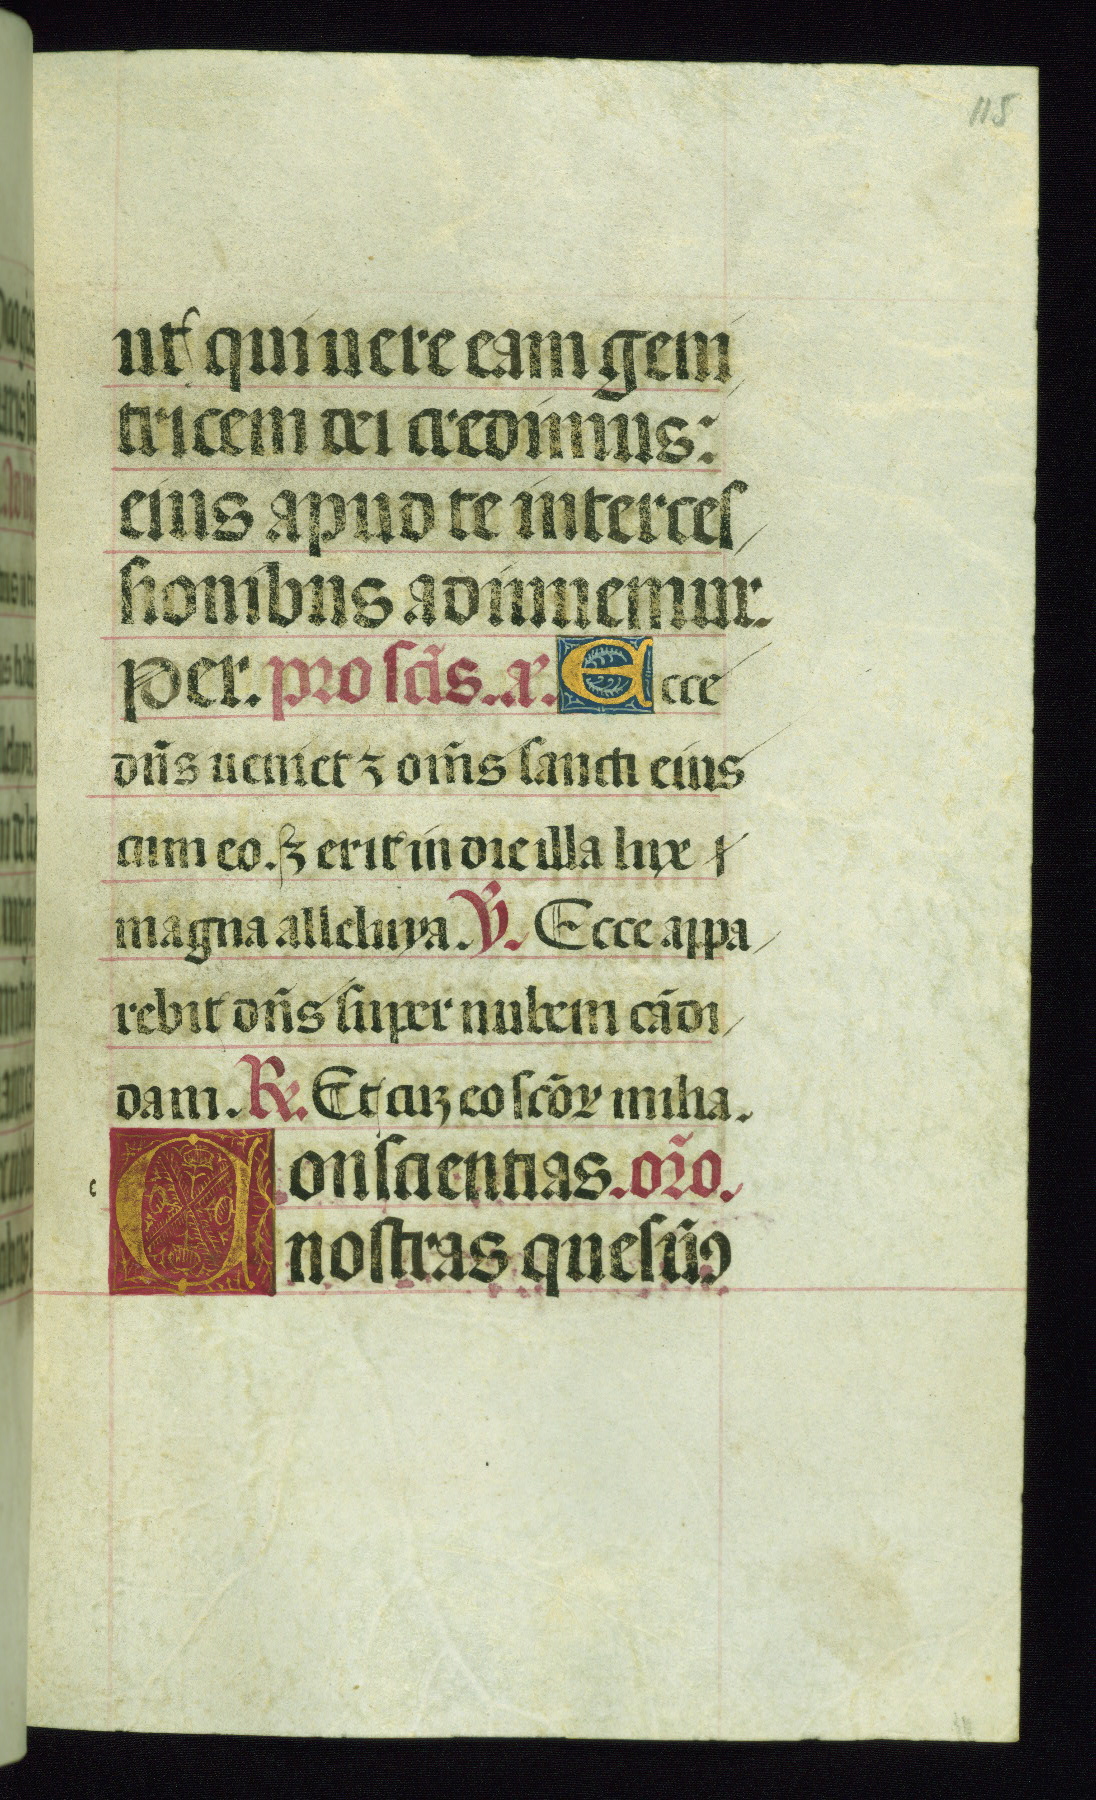 115
ut qui uere eam geni
tricem dei credimus:
eius apud te interces
sionibus adiuuemur.
per. pro scīs. añ. Ecce
dn̄s ueniet ⁊ om̄s sancti eius
cum eo. ⁊ erit in die illa lux
magna alleluya. ℣. Ecce appa
rebit dn̄s super nubem cādi
dam. ℞. Et cuꝫ eo scōꝝ milia.
c
Conscientias. orō.
nostras quesum̄ꝰ